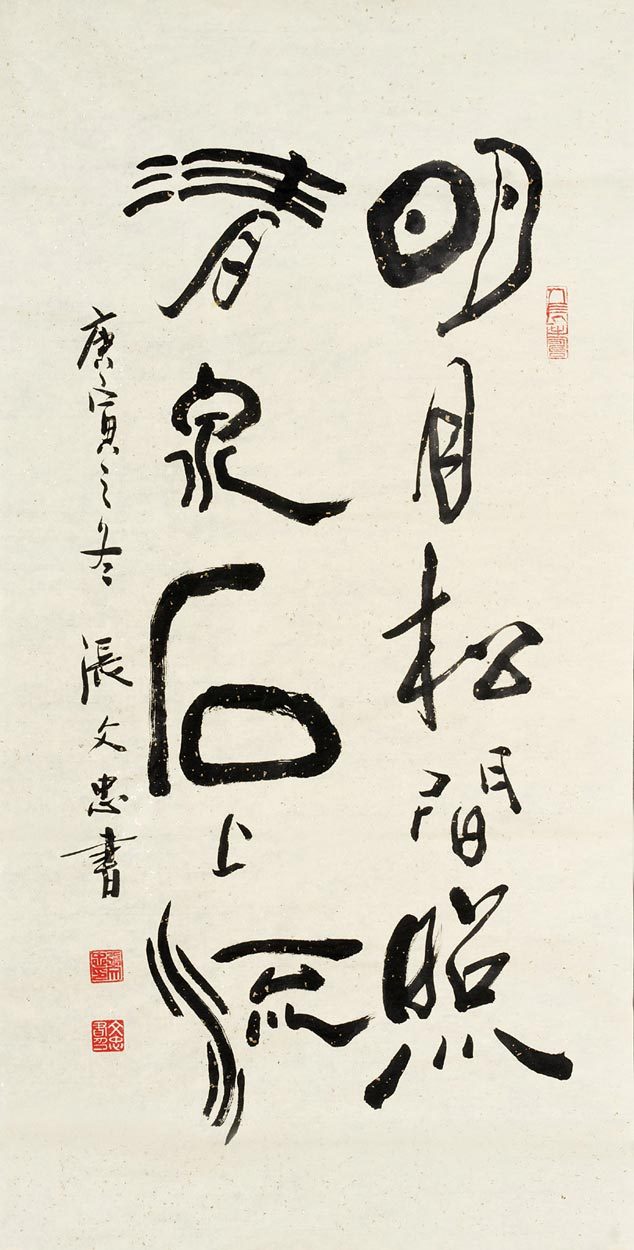 明月松間照
清泉石上流
庚寅之冬 張文忠書